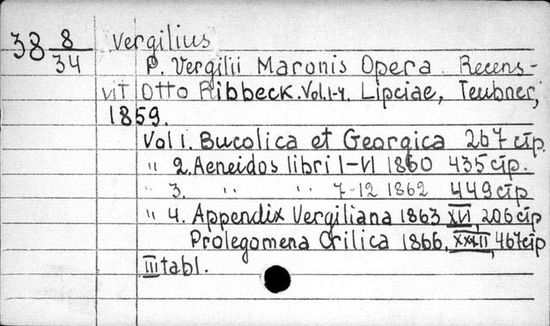 38 8/34 Vergilius
P. Vergilii Maronis Opera. Recens-
vit Otto Ribbeck. Vol. 1-4. Lipciae, Teubner,
1859.
Vol 1. Bucolica et Georgica 267 cīp.
" 2. Aeneidos libri I-VI 1860 435 cīp.
" 3. " " 7-12 1862 449 cīp
" 4. Appendix Vergiliana 1863 XVI, 206 cīp
Prolegomena Crilica 1866, XXXII, 467 cīp
III tabl.